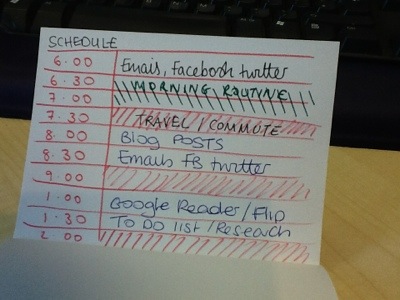 SCHEDULE
6.00 Emais, facebook twitter
6.30 MORNING ROUTINE
7.00
7.30 TRAVEL / COMMUTE
8.00 BLOG POSTS
8.30 Emails FB twitter
9.00
1.00 Google Reader / Flip
1.30 TO DO list / Reseach
2 00